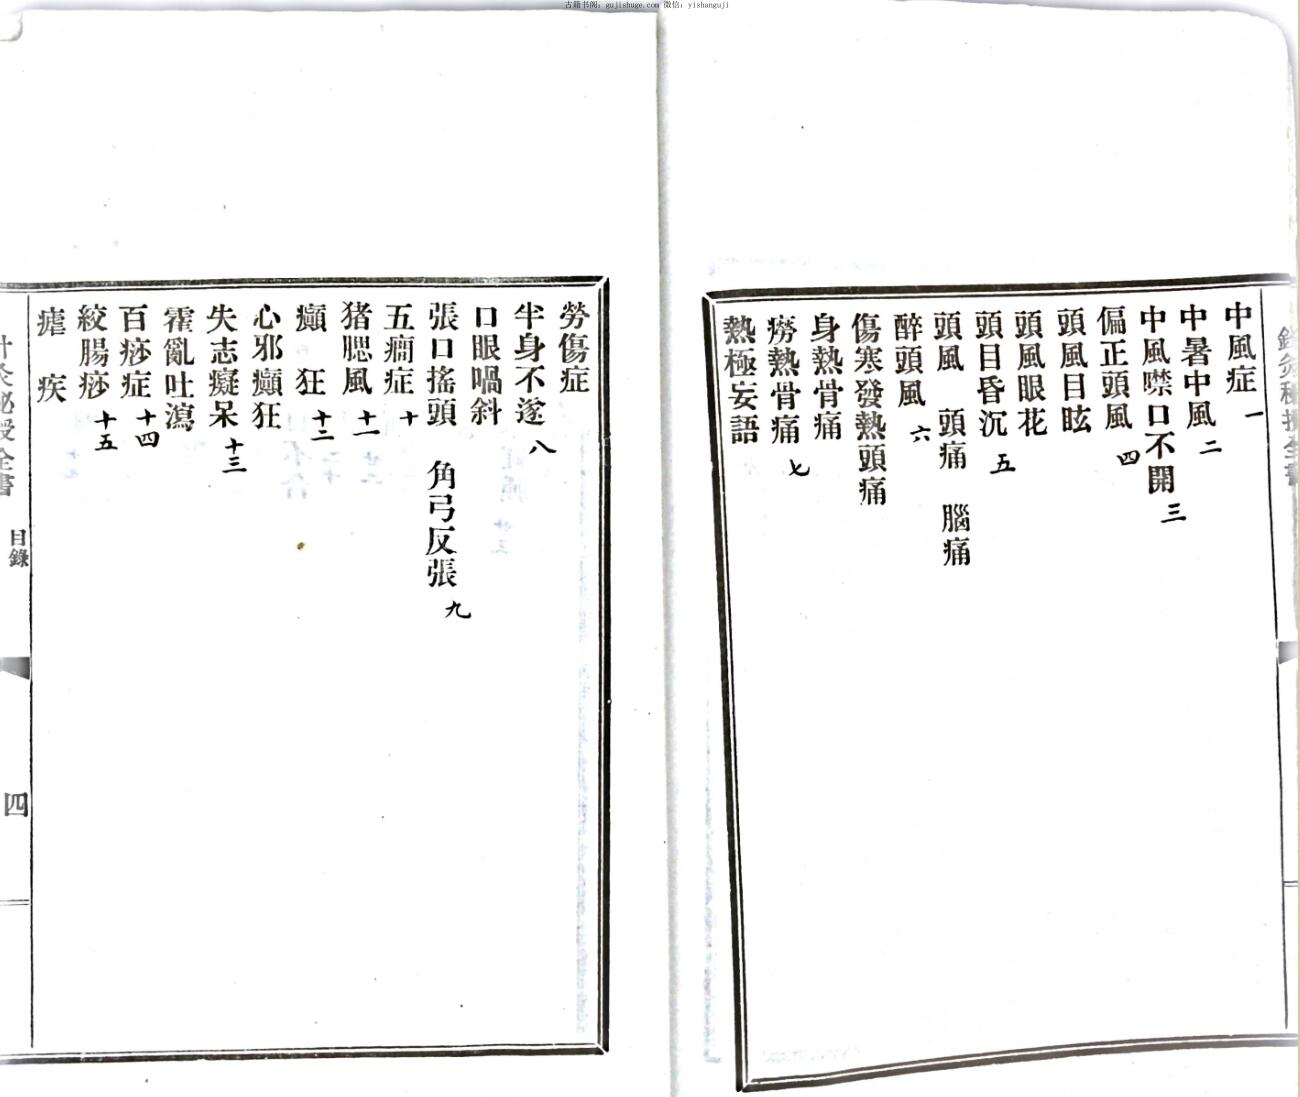 古籍书阁: gujishuge.com 微信: yishanguji
中風症 一
中暑中風 二
中風噤口不開 三
偏正頭風 四
頭風目眩
頭風眼花
頭目昏沉 五
頭風 頭痛 腦痛
醉頭風 六
傷寒發熱頭痛
身熱骨痛
癆熱骨痛 七
熱極妄語
勞傷症
半身不遂 八
口眼喎斜
張口搖頭 角弓反張 九
五癎症 十
猪腮風 十一
癲狂 十二
心邪癲狂
失志癡呆 十三
霍亂吐瀉
百痧症 十四
絞腸痧 十五
瘧疾
針灸秘授全書 目錄 四